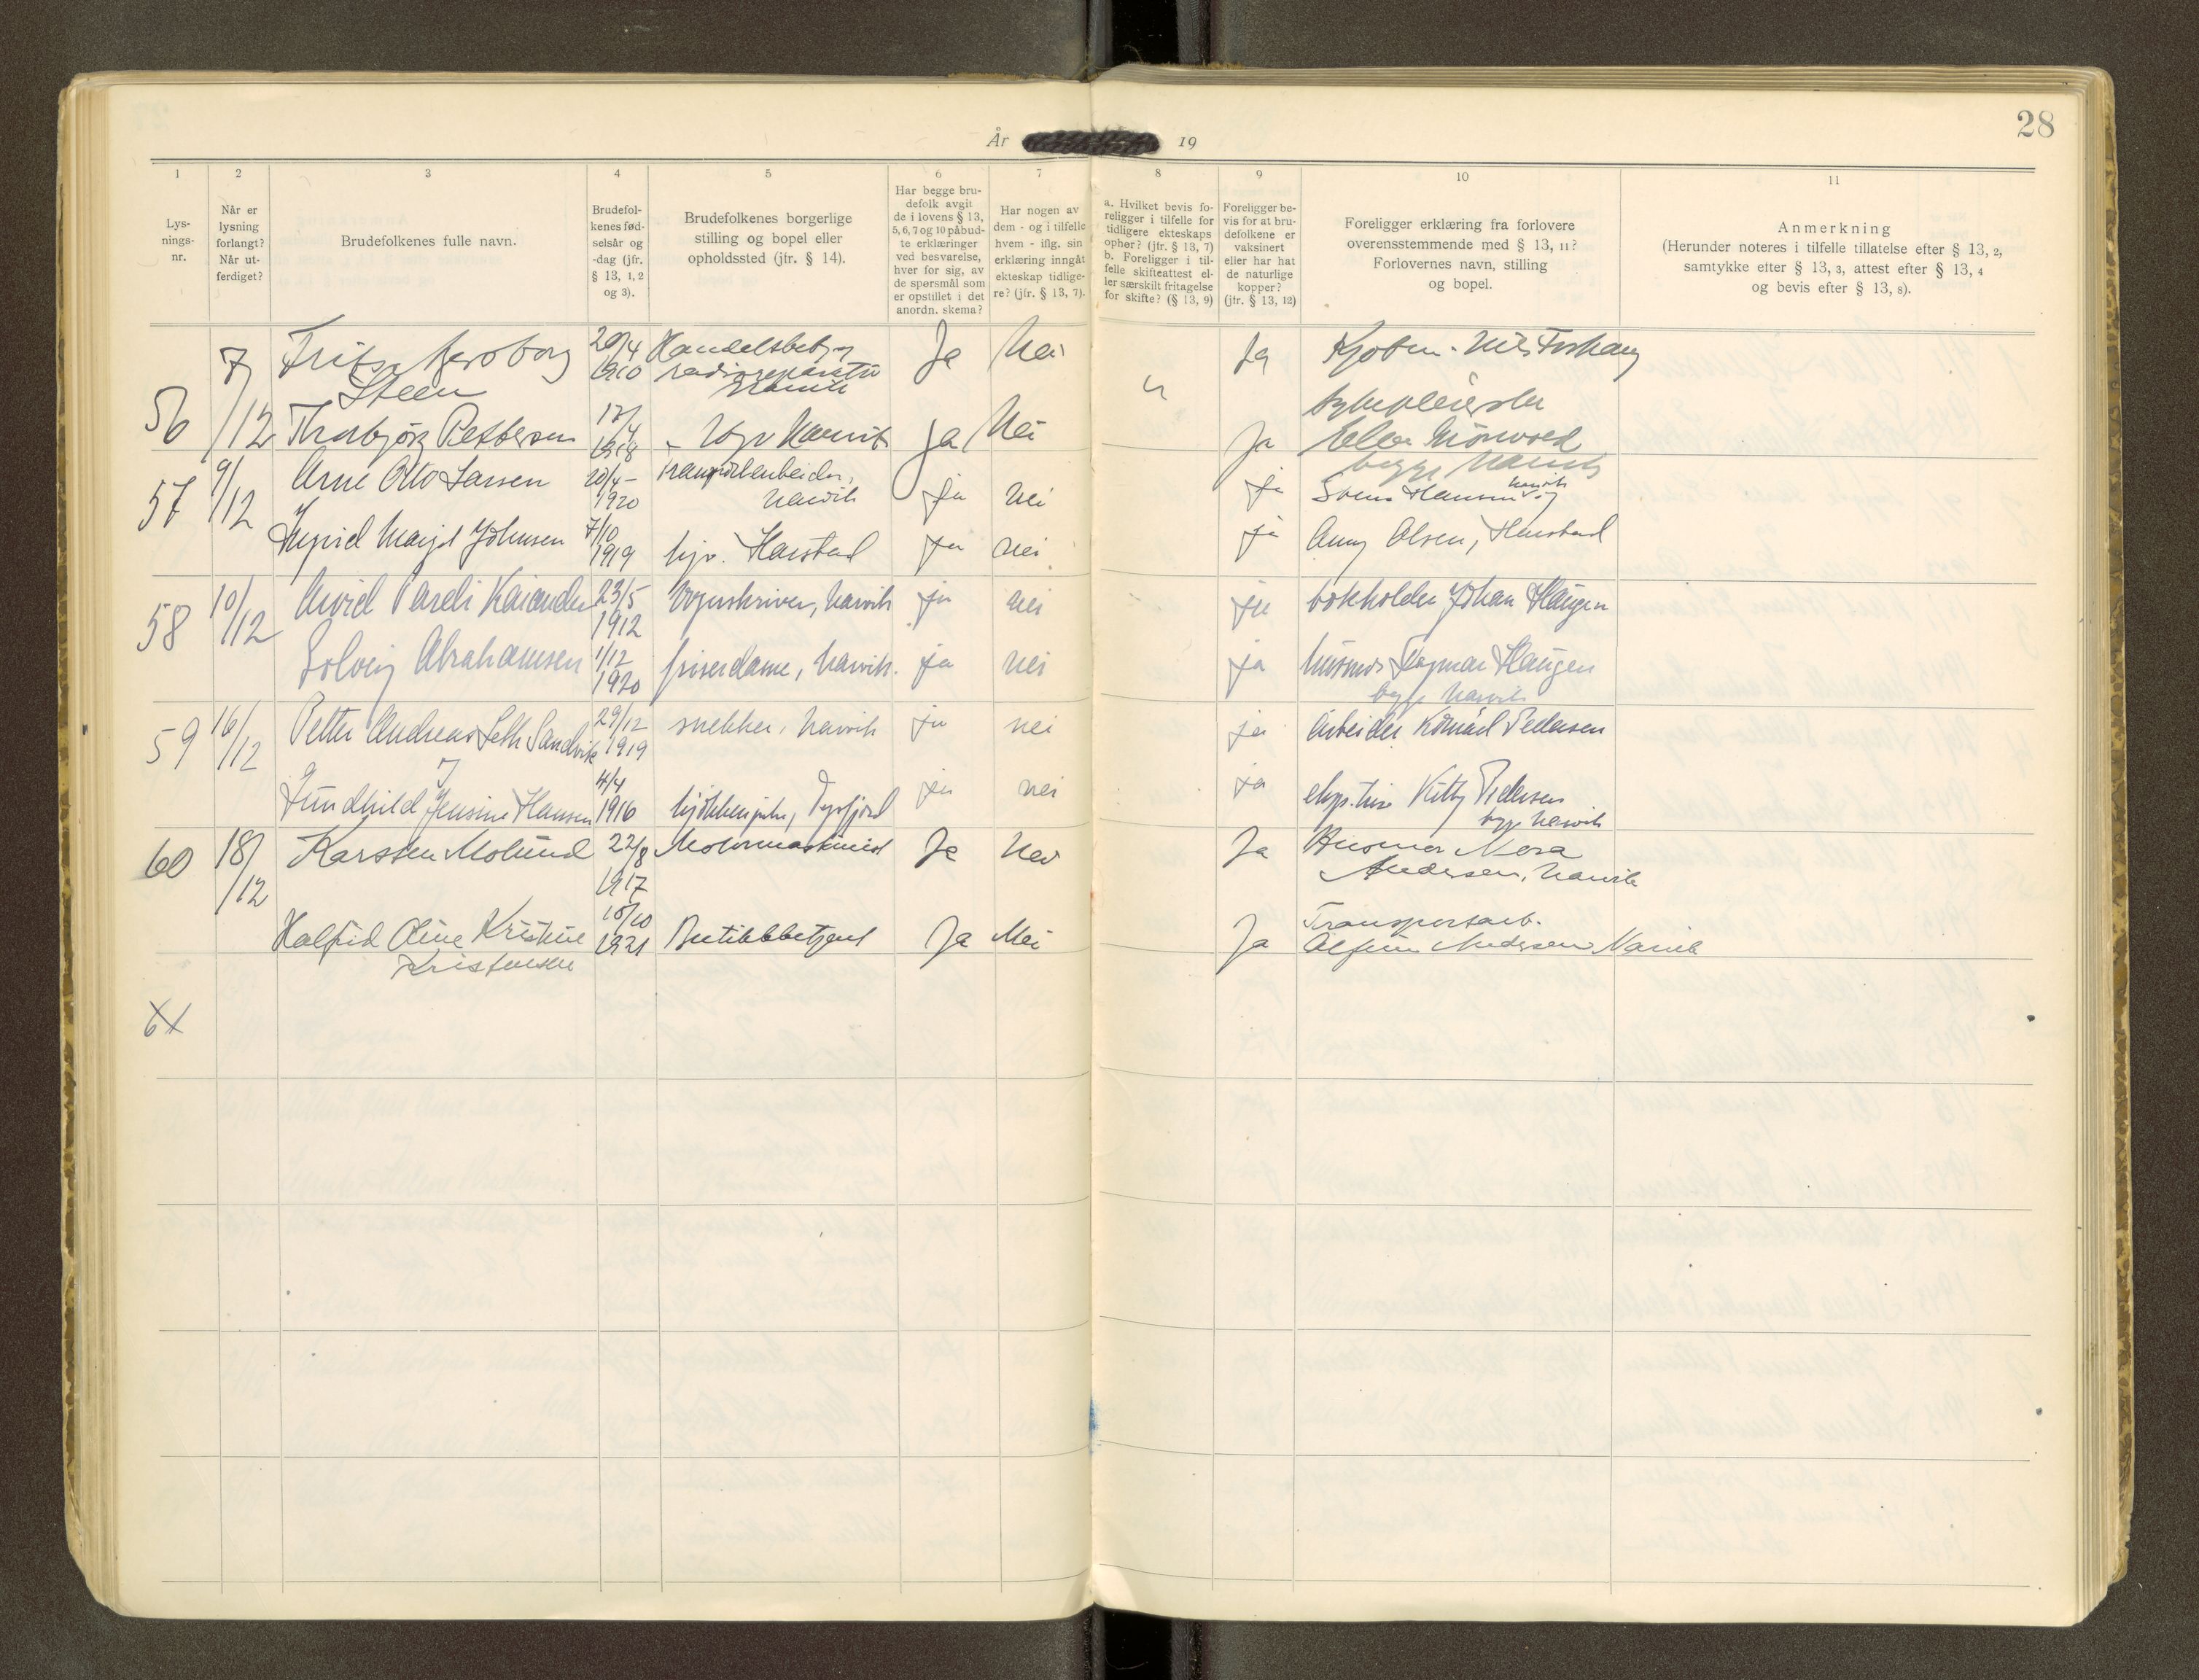 28
År 19
1 2 3 4 5 6 7 8 9 10 11
Lys-
nings-
nr.
Når er
lysning
forlangt?
Når ut-
ferdiget?
Brudefolkenes fulle navn.
Brudefol-
kenes fød-
selsår og
-dag (jfr.
§ 13, 1, 2
og 3).
Brudefolkenes borgerlige
stilling og bopel eller
opholdssted (jfr. § 14).
Har begge bru-
defolk avgit
de i lovens § 13,
5, 6, 7 og 10 påbud-
te erklæringer
ved besvarelse,
hver for sig, av
de spørsmål som
er opstillet i det
anordn. skema?
Har nogen av
dem - og i tilfelle
hvem - iflg. sin
erklæring inngåt
ekteskap tidlige-
re? (jfr. § 13, 7).
a. Hvilket bevis fo-
religger i tilfelle for
tidligere ekteskaps
ophør? (jfr. § 13, 7)
b. Foreligger i til-
felle skifteattest el-
ler særskilt fritagelse
for skifte? (§ 13, 9)
Foreligger be-
vis for at bru-
defolkene er
vaksinert
eller har hat
de naturlige
kopper?
(jfr. § 13, 12)
Foreligger erklæring fra forlovere
overensstemmende med § 13, 11?
Forlovernes navn, stilling
og bopel.
Anmerkning
(Herunder noteres i tilfelle tillatelse efter § 13, 2,
samtykke efter § 13, 3, attest efter § 13, 4
og bevis efter § 13, 8).
56 7/12 20/4 1910 Ja Nei Ja
Steen
Thorbjørg Pettersen 1918 Narvik Ja Nei Ja
57 9/12 Arne Otto Larsen 20/4- 1920 Narvik ja nei ja Hansen
Ingrid Margit Johnsen 7/10 1919 hjv. Harstad ja nei ja Anny Olsen, Harstad
58 10/12 Arvid 23/5 1912 Narvik ja nei ja bokholder Johan Haugen
Solveig Abrahamsen 1/12 1920 friserdame, Narvik. ja nei ja husmor Dagmar Haugen
begge Narvik
59 16/12 Petter Andreas Seth Sandvik 29/12 1919 snekker, Narvik ja nei ja Arbeider Konrad Pedersen
Gundhild Jensine Hansen 4/4 1916 Tysfjord ja nei ja Kitty Pedersen
begge Narvik
60 18/12 Karsten Molund 22/8 1917 Motormaskinist Ja Nei Ja Husmor Nora
Andersen, Narvik
Transportarb.
Kristine 10/10 1921 Butikkbetjent Ja Nei Ja Andersen Narvik
Kristensen
61